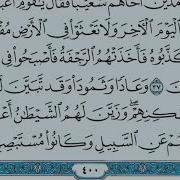 مَدْيَنَ أَخَاهُمْ شُعَيْبًا فَقَالَ يَٰقَوْمِ ٱعْ
ٱلْيَوْمَ ٱلْءَاخِرَ وَلَا تَعْثَوْا۟ فِى ٱلْأَرْضِ مُف
كَذَّبُوهُ فَأَخَذَتْهُمُ ٱلرَّجْفَةُ فَأَصْبَحُوا۟ فِى
نَ ٣٧ وَعَادًا وَثَمُودَا۟ وَقَد تَّبَيَّنَ
كِنِهِمْ وَزَيَّنَ لَهُمُ ٱلشَّيْطَٰنُ أَعْ
هُمْ عَنِ ٱلسَّبِيلِ وَكَانُوا۟ مُسْتَبْصِ
٤٠٠